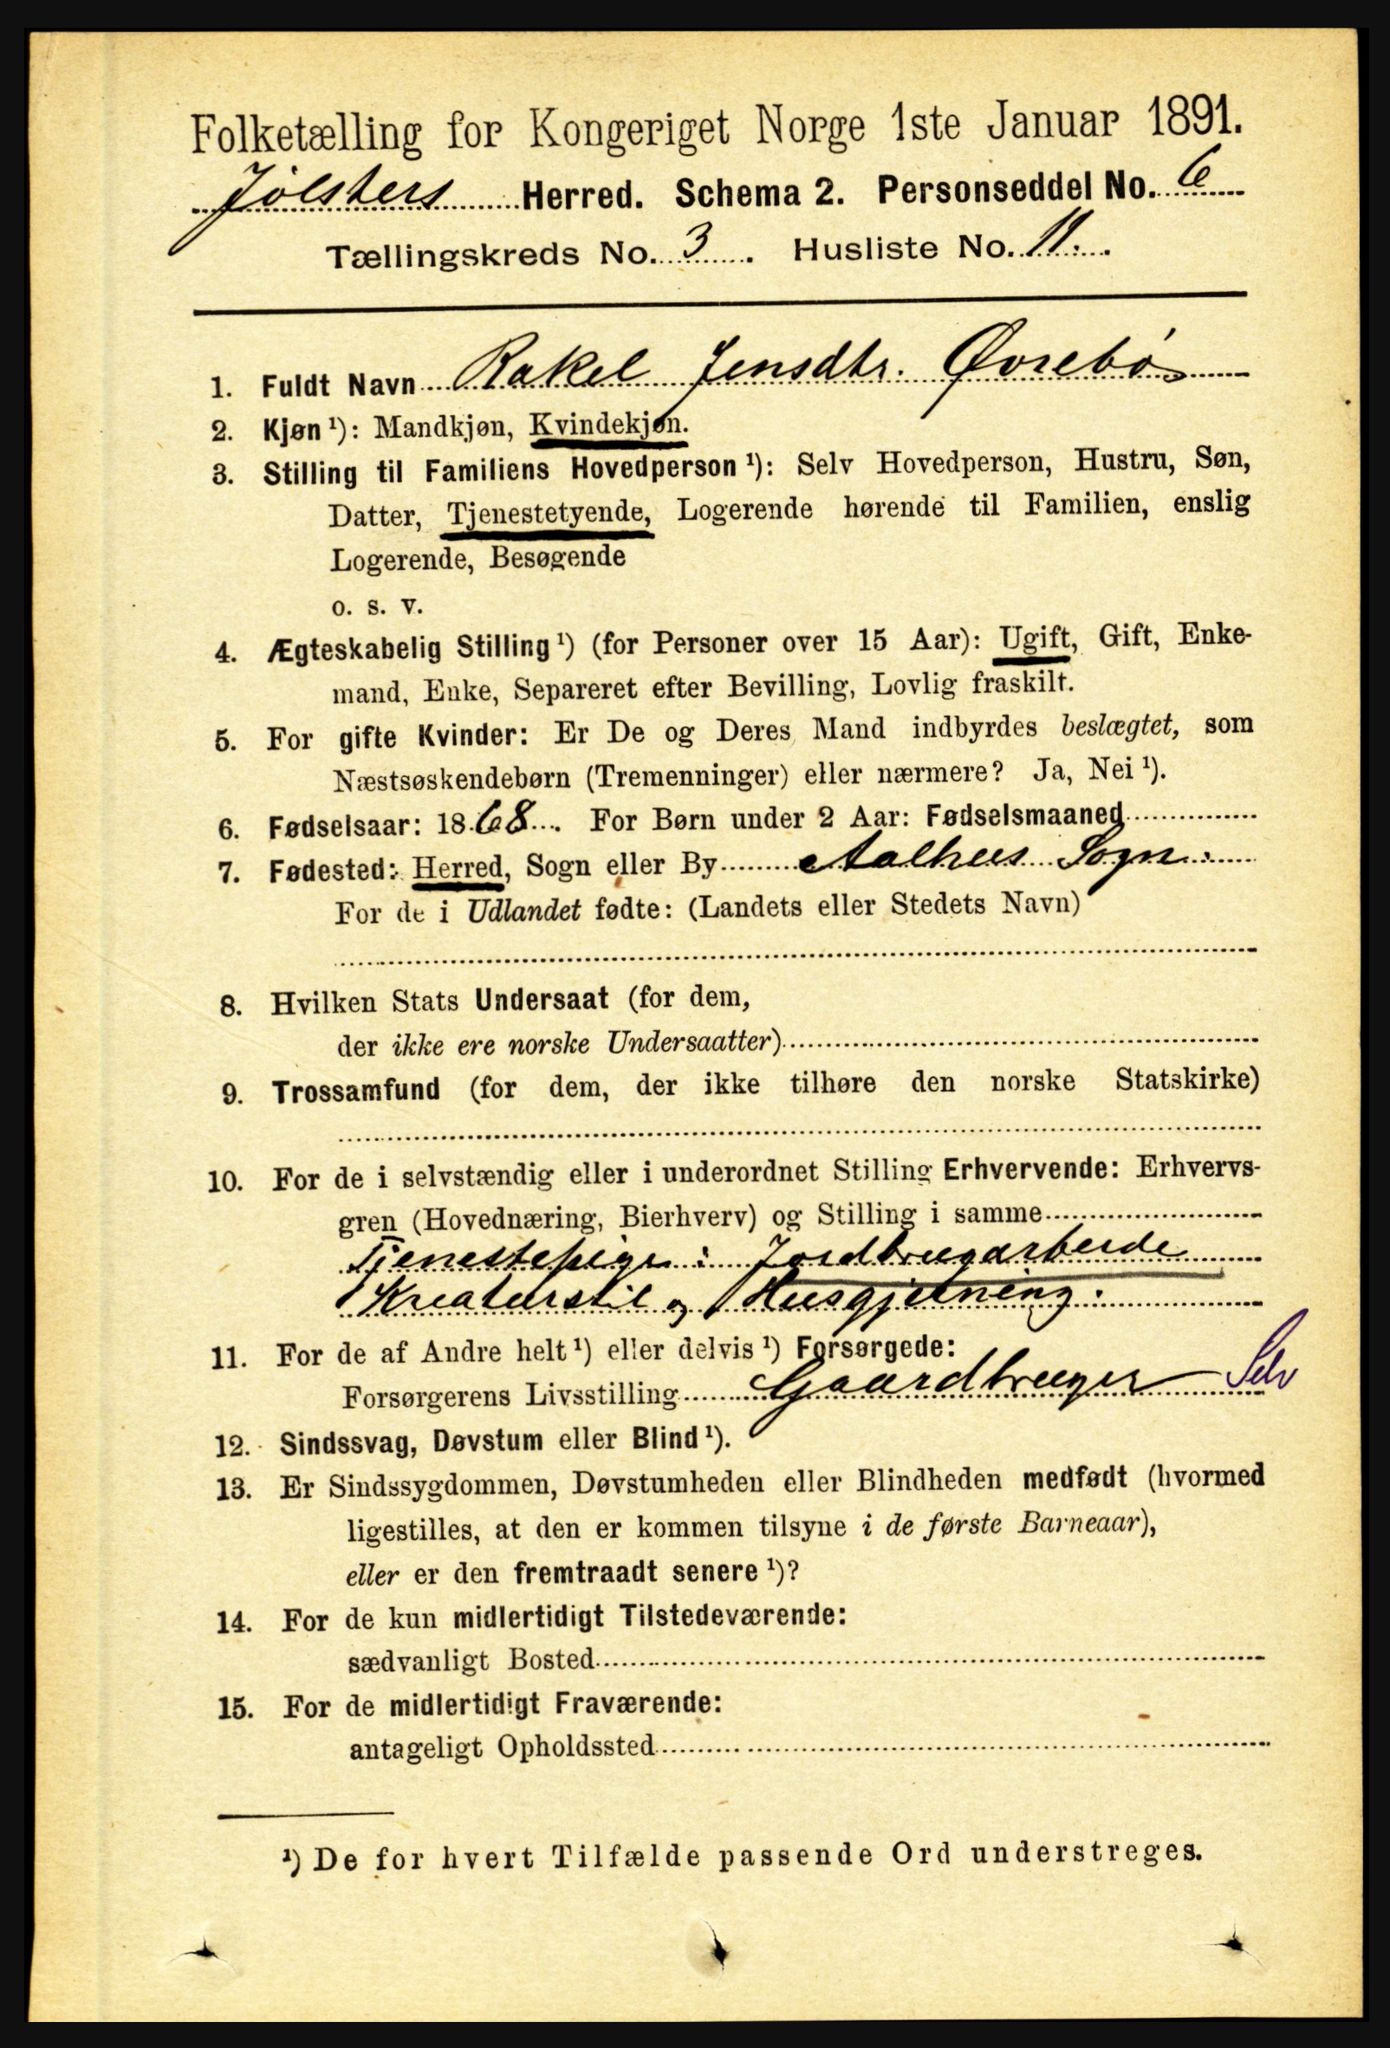 Folketælling for Kongeriget Norge 1ste Januar 1891.
Jølsters Herred. Schema 2. Personseddel No. 6
Tællingskreds No. 3. Husliste No. 11.
1. Fuldt Navn Rakel Jensdtr. Øvrebø
2. Kjøn ¹): Mandkjøn, Kvindekjøn.
3. Stilling til Familiens Hovedperson ¹): Selv Hovedperson, Hustru, Søn,
Datter, Tjenestetyende, Logerende hørende til Familien, enslig
Logerende, Besøgende
o. s. v.
4. Ægteskabelig Stilling ¹) (for Personer over 15 Aar): Ugift, Gift, Enke-
mand, Enke, Separeret efter Bevilling, Lovlig fraskilt.
5. For gifte Kvinder: Er De og Deres Mand indbyrdes beslægtet, som
Næstsøskendebørn (Tremenninger) eller nærmere? Ja, Nei ¹).
6. Fødselsaar: 1868. For Børn under 2 Aar: Fødselsmaaned
7. Fødested: Herred, Sogn eller By Aalhus Sogn.
For de i Udlandet fødte: (Landets eller Stedets Navn)
8. Hvilken Stats Undersaat (for dem,
der ikke ere norske Undersaatter)
9. Trossamfund (for dem, der ikke tilhøre den norske Statskirke)
10. For de i selvstændig eller i underordnet Stilling Erhvervende: Erhvervs-
gren (Hovednæring, Bierhverv) og Stilling i samme
Tjenestepige: Jordbrugarbeide
Kreaturstel og Husgjerning.
11. For de af Andre helt ¹) eller delvis ¹) Forsørgede:
Forsørgerens Livsstilling Gaardbruger Selv
12. Sindssvag, Døvstum eller Blind ¹).
13. Er Sindssygdommen, Døvstumheden eller Blindheden medfødt (hvormed
ligestilles, at den er kommen tilsyne i de første Barneaar),
eller er den fremtraadt senere ¹)?
14. For de kun midlertidigt Tilstedeværende:
sædvanligt Bosted
15. For de midlertidigt Fraværende:
antageligt Opholdssted
¹) De for hvert Tilfælde passende Ord understreges.